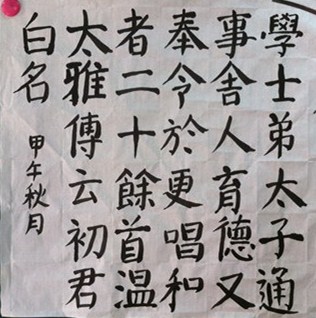 學士弟太子通
事舍人育德又
奉令於更唱和
者二十餘首温
太雅傳云初君
白名
甲午秋月